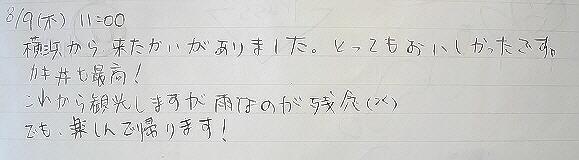 8/9(木) 11:00
横浜から来たかいがありました。とってもおいしかったです。
カキ丼も最高!
これから観光しますが雨なのが残念(×<)
でも、楽しんで帰ります!